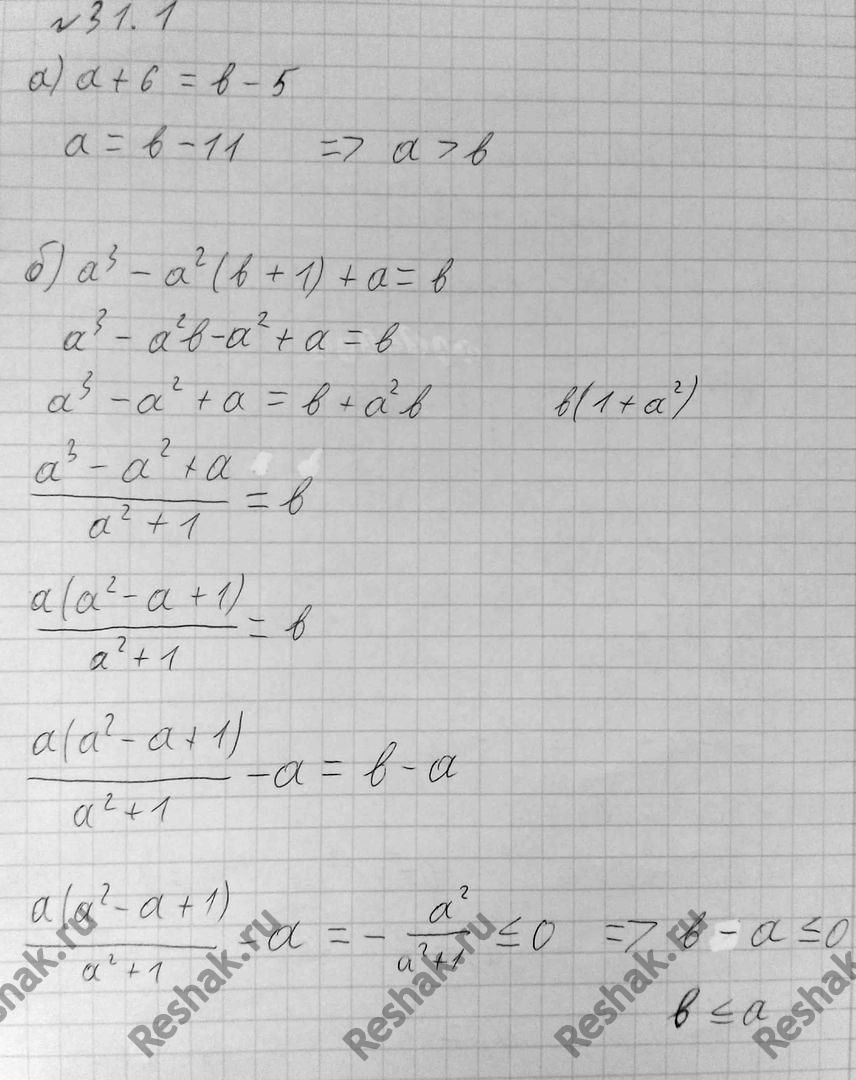 №31.1
а) a + 6 = b - 5
a = b - 11 => a > b
б) a³ - a²(b + 1) + a = b
a³ - a²b - a² + a = b
a³ - a² + a = b + a²b b(1 + a²)
a³ - a² + a
a² + 1 = b
a(a² - a + 1)
a² + 1 = b
a(a² - a + 1)
a² + 1 - a = b - a
a(a² - a + 1)
a² + 1 - a = - a²
a² + 1 ≤ 0 => b - a ≤ 0
b ≤ a
Reshak.ru Reshak.ru Reshak.ru Reshak.ru Reshak.ru